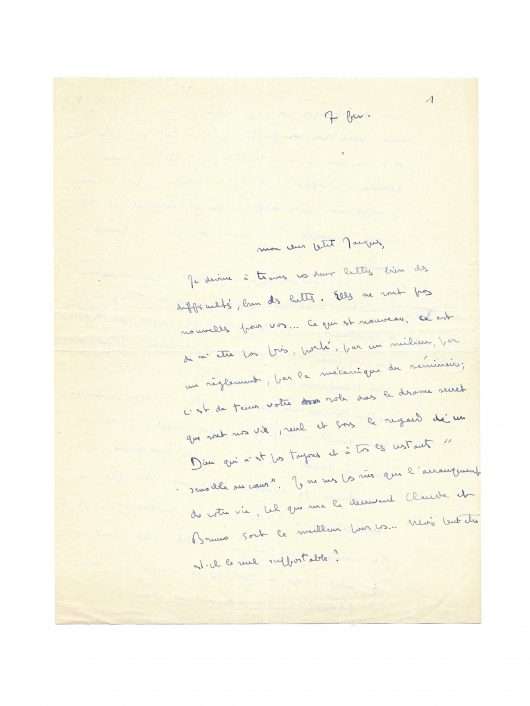 1
7 fev.
mon cher petit Jacques,
Je devine à travers vos deux lettres bien des
difficultés, bien des luttes. Elles ne sont pas
nouvelles pour vous... Ce qui est nouveau, c'est
de n'être pas pris, porté, par un milieu, par
un règlement, par la mécanique du séminaire ;
c'est de tenir votre rôle dans le drame secret
que sont nos vies, seul et sous le regard d'un
Dieu qui n'est pas toujours et à tous les instants "
sensible au cœur". Je ne suis pas sûr que l'arrangement
de votre vie, tel que me le décrivent Claude et
Bruno soit le meilleur pour vous... Mais peut-être
est-il le seul supportable ?